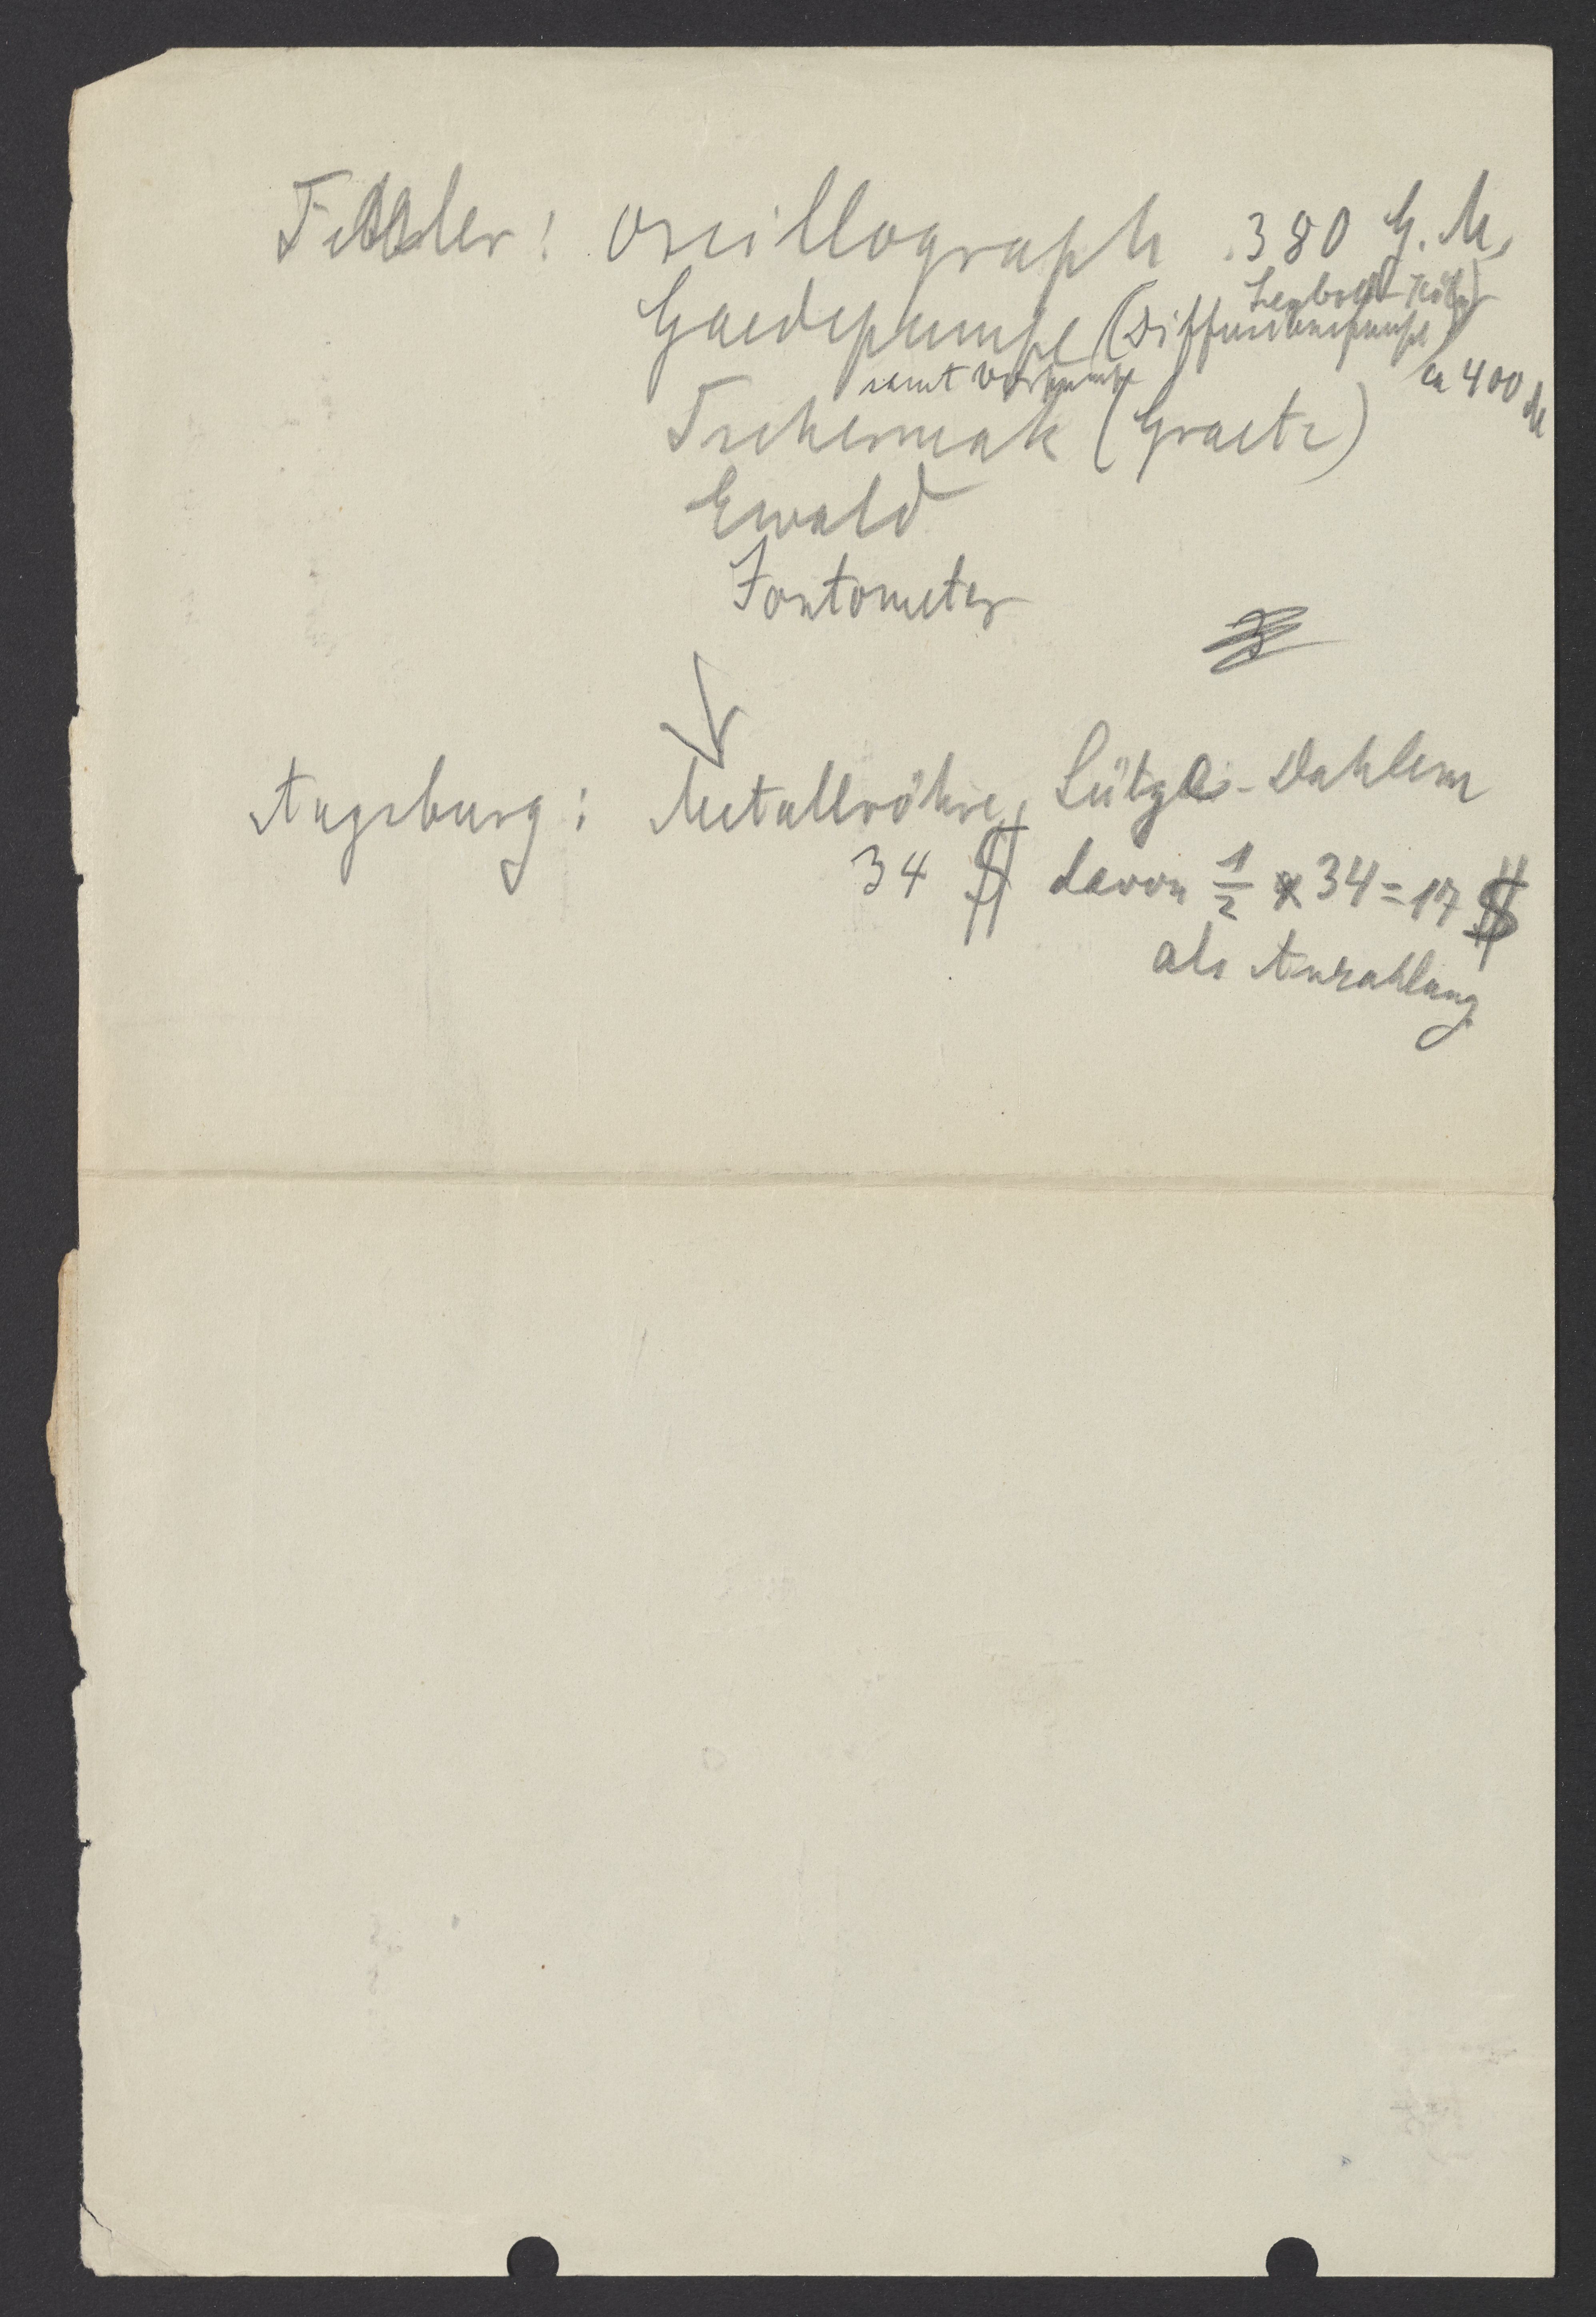 Oscillograph 380 G. M.
Leybold-Köln
Gaedepumpe (Diffusionspumpe)
samt Vorpumpe ca 400 M
Tschermak (Graetz)
Ewald
Iontometer
Augsburg: Metallröhre, Dahlem
34 $ davon 1/2 x 34 = 17 $
als Anzahlung